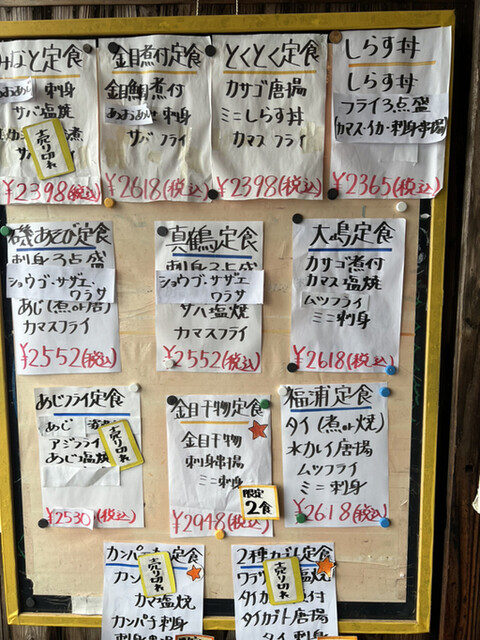 みなと定食
あおあじ 刺身
サバ塩焼
売り切れ
¥2398(税込)
金目煮付定食
金目鯛煮付
あおあじ 刺身
サバ フライ
¥2618(税込)
とくとく定食
カサゴ唐揚
ミニしらす丼
カマス フライ
¥2398(税込)
しらす丼
しらす丼
フライ3点盛
(カマス・イカ・刺身串揚)
¥2365(税込)
磯あそび定食
刺身3点盛
ショウゴ・サザエ、
ワラサ
あじ(煮or唐)
カマスフライ
¥2552(税込)
真鶴定食
刺身3点盛
ショウゴ・サザエ
ワラサ
サバ塩焼
カマスフライ
¥2552(税込)
大島定食
カサゴ煮付
カマス塩焼
ムツフライ
ミニ刺身
¥2618(税込)
あじフライ定食
あじ
アジフライ
あじ塩焼
売り切れ
¥2530(税込)
金目干物定食
金目干物
刺身串揚
ミニ刺身
限定
2食
¥2948(税込)
福浦定食
タイ(煮or焼)
水カレイ唐揚
ムツフライ
ミニ刺身
¥2618(税込)
カンパチ定食
売り切れ
カマ塩焼
カンパチ刺身
刺身串揚
2種カブト定食
売り切れ
ワラサ 塩焼
タイカブト煮付
タイカブト唐揚
タイ 刺身